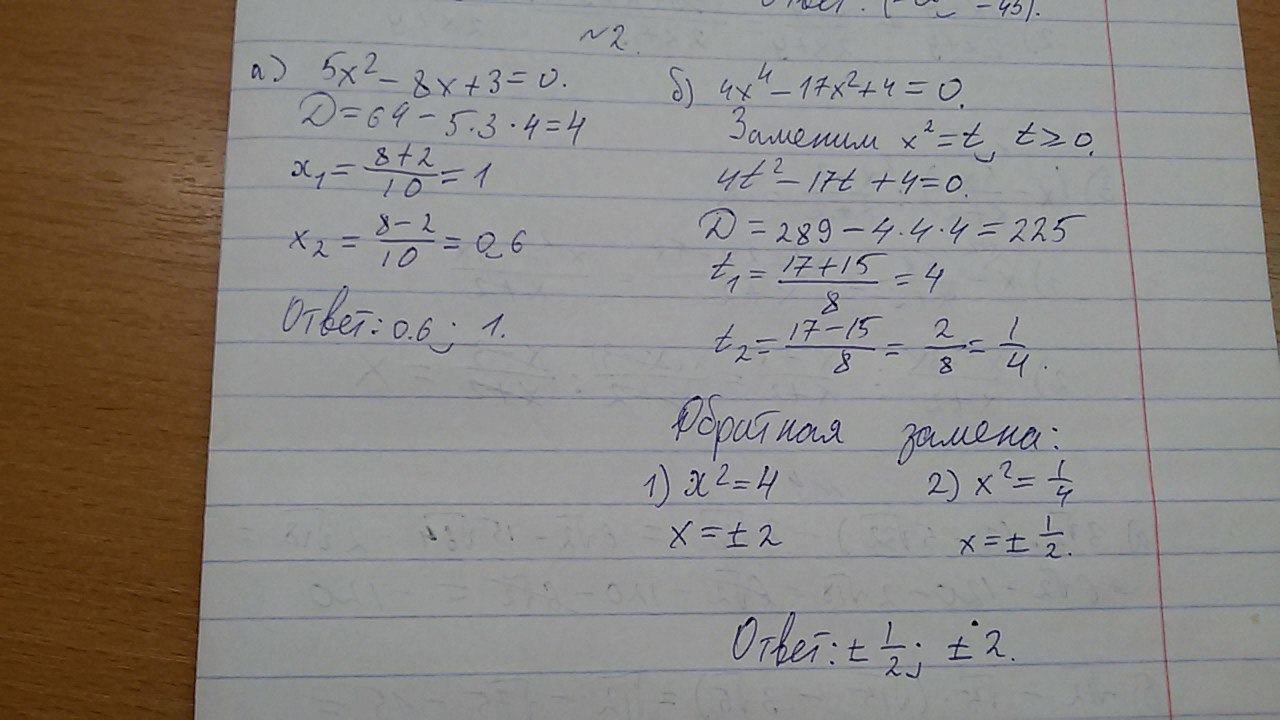 Ответ: (-∞; -45).
№2.
а) 5x² - 8x + 3 = 0.
D = 64 - 5·3·4 = 4
x₁ = (8+2)/10 = 1
x₂ = (8-2)/10 = 0,6
Ответ: 0.6; 1.
б) 4x⁴ - 17x² + 4 = 0.
Заменим x² = t, t ≥ 0.
4t² - 17t + 4 = 0.
D = 289 - 4·4·4 = 225
t₁ = (17+15)/8 = 4
t₂ = (17-15)/8 = 2/8 = 1/4.
Обратная замена:
1) x² = 4 2) x² = 1/4
x = ±2 x = ± 1/2.
Ответ: ± 1/2; ± 2.